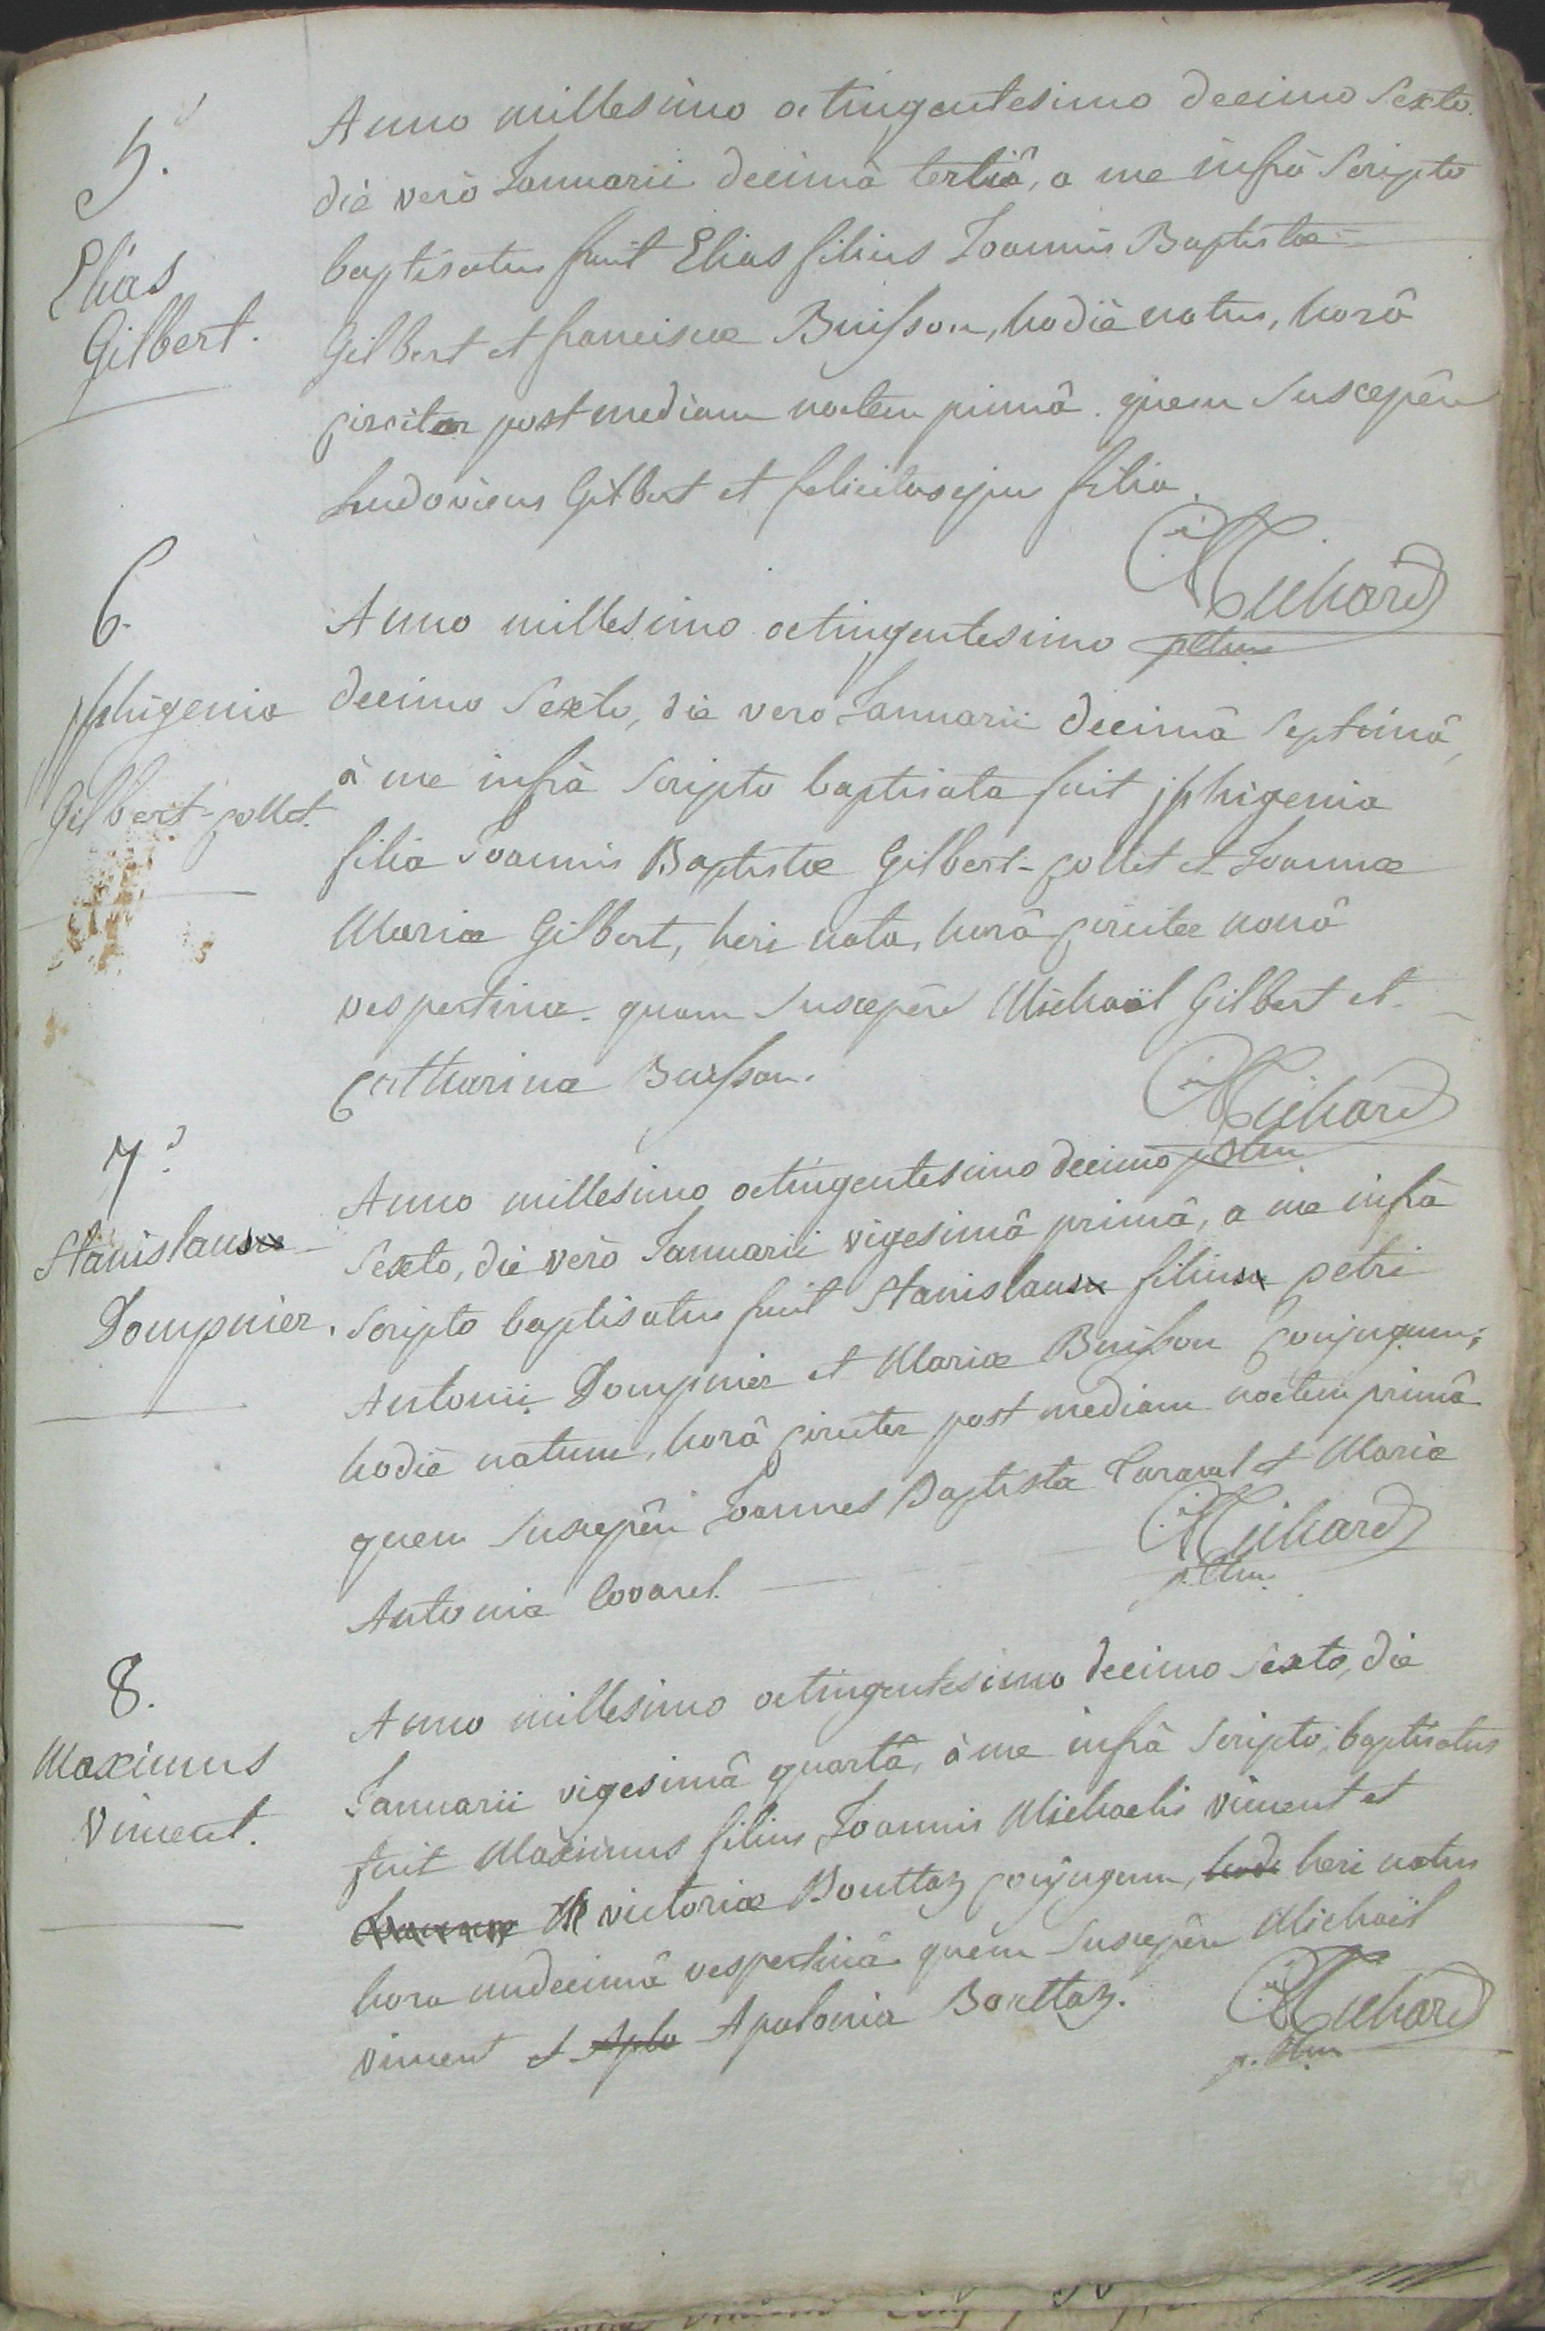 5.
Elias
Gilbert.
Anno millesimo octingentesimo decimo Sexto.
die verò Januarii decimâ tertiâ, a me infrà Scripto
baptisatus fuit Elias filius Joannis Baptistæ
Gilbert et franciscæ Buisson, hodiè natus, horâ
circiter post mediam noctem primâ. quem Suscepêre
Ludovicus Gilbert et felicitas ejus filia.
Richard
6.
jphigenia
Gilbert-collet.
Anno millesimo octingentesimo
decimo Sexto, die vero Januarii decimâ Septimâ,
à me infrà Scripto baptisata fuit jphigenia
filia Joannis Baptistæ Gilbert-collet et Joannæ
Mariæ Gilbert, heri nata, horâ circiter nonâ
vespertina. quam Suscepêre Michaël Gilbert et
Catharina Buisson.
Richard
7.
Stanislaus
Dompnier.
Anno millesimo octingentesimo decimo
Sexto, die verò Januarii vigesimâ primâ, a me infrà
Scripto baptisatus fuit Stanislaus filius petri
Antonii Dompnier et Mariæ Buisson conjugum;
hodiè natum, horâ circiter post mediam noctem primâ
quem Suscepêre Joannes Baptista et Maria
Antonia Covarel.
Richard
8.
Maximus
Vincent.
Anno millesimo octingentesimo decimo Sexto, die
Januarii vigesimâ quartâ, à me infrà Scripto, baptisatus
fuit Maximus filius Joannis Michaelis vincent et
victoriæ Bouttaz conjugum, heri natus
hora undecimâ vespertinâ quem Suscepêre Michaël
vincent et Apolonia Bouttaz.
Richard